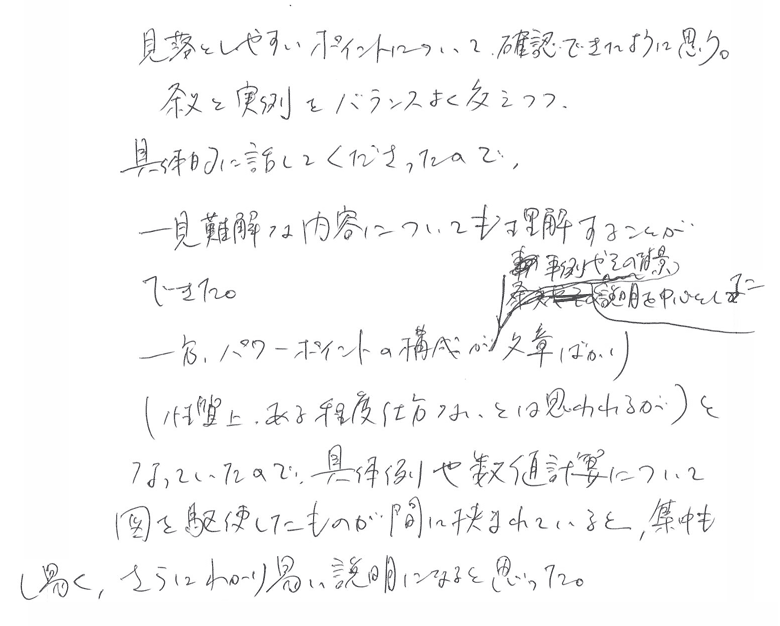 見落としやすいポイントについて確認できたように思う。
条文と実例をバランスよく交えつつ、
具体的に話してくださったので、
一見難解な内容についても理解することが
できた。
事例やその背景
説明を中心とした
一方、パワーポイントの構成が文章ばかり
(性質上、ある程度仕方ないとは思われるが)と
なっていたので、具体例や数値計算について
図を駆使したものが間に挟まれていると、集中も
し易く、さらにわかり易い説明になると思った。